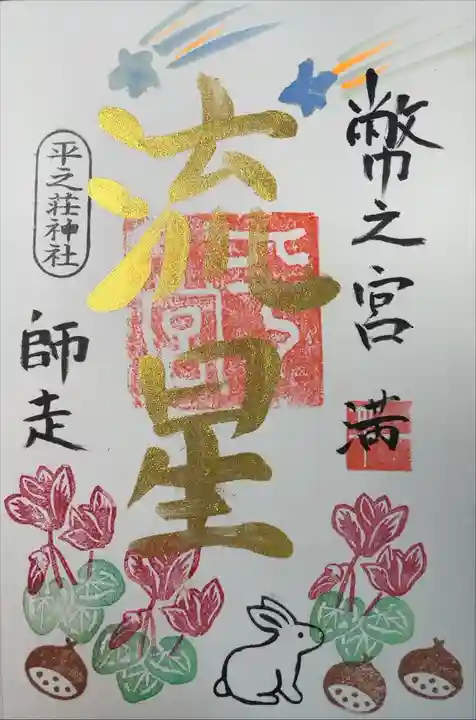 幣之宮
満
流星
平之荘神社
師走